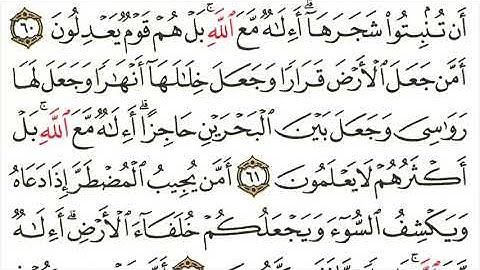 أَن تُنۢبِتُوا۟ شَجَرَهَآ ۗ أَءِلَٰهٌ مَّعَ ٱللَّهِ ۚ بَلْ هُمْ قَوْمٌ يَعْدِلُونَ ٦٠
أَمَّن جَعَلَ ٱلْأَرْضَ قَرَارًا وَجَعَلَ خِلَٰلَهَآ أَنْهَٰرًا وَجَعَلَ لَهَا
رَوَٰسِىَ وَجَعَلَ بَيْنَ ٱلْبَحْرَيْنِ حَاجِزًا ۗ أَءِلَٰهٌ مَّعَ ٱللَّهِ ۚ بَلْ
أَكْثَرُهُمْ لَا يَعْلَمُونَ ٦١ أَمَّن يُجِيبُ ٱلْمُضْطَرَّ إِذَا دَعَاهُ
وَيَكْشِفُ ٱلسُّوٓءَ وَيَجْعَلُكُمْ خُلَفَآءَ ٱلْأَرْضِ ۗ أَءِلَٰهٌ